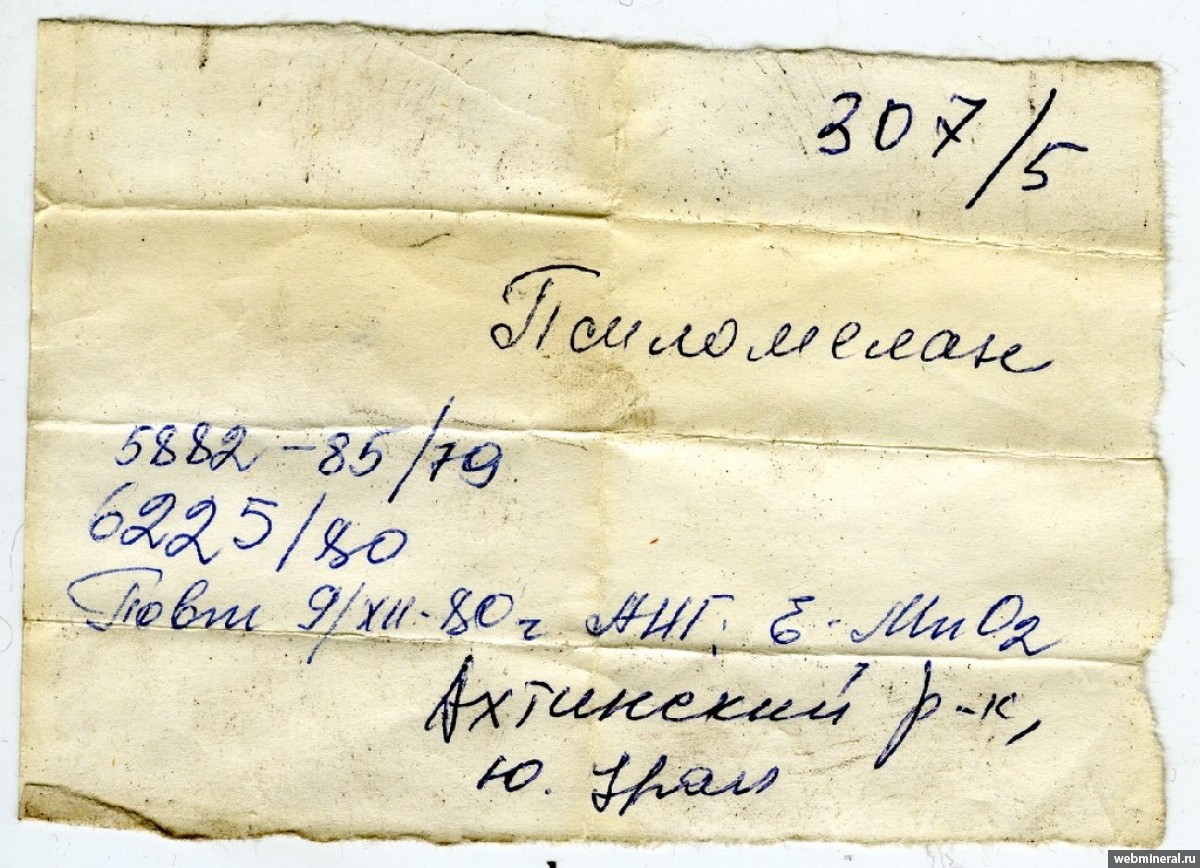 307/5
Псиломелан
5882-85/79
6225/80
Повт 9/XII-80г АНГ. Ɛ-MnO2
Ахтинский р-к,
Ю. Урал
webmineral.ru